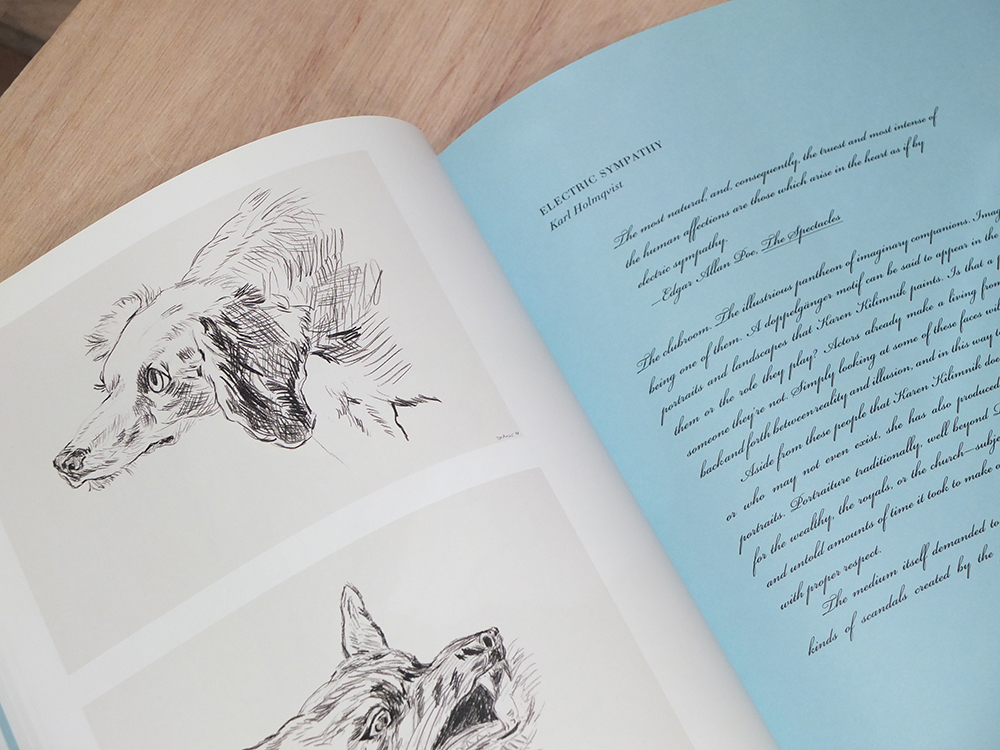 ELECTRIC SYMPATHY
Karl Holmqvist
The most natural, and, consequently, the truest and most intense of
the human affections are those which arise in the heart as if by
electric sympathy.
—Edgar Allan Poe, The Spectacles
The clubroom. The illustrious pantheon of imaginary companions. Imag
being one of them. A doppelgänger motif can be said to appear in the
portraits and landscapes that Karen Kilimnik paints. Is that a p
them or the role they play? Actors already make a living from
someone they're not. Simply looking at some of these faces wil
back and forth between reality and illusion, and in this way to
Aside from these people that Karen Kilimnik doe
or who may not even exist, she has also produced
portraits. Portraiture traditionally, well beyond
for the wealthy, the royals, or the church—subje
and untold amounts of time it took to make
with proper respect.
The medium itself demanded to
kinds of scandals created by the